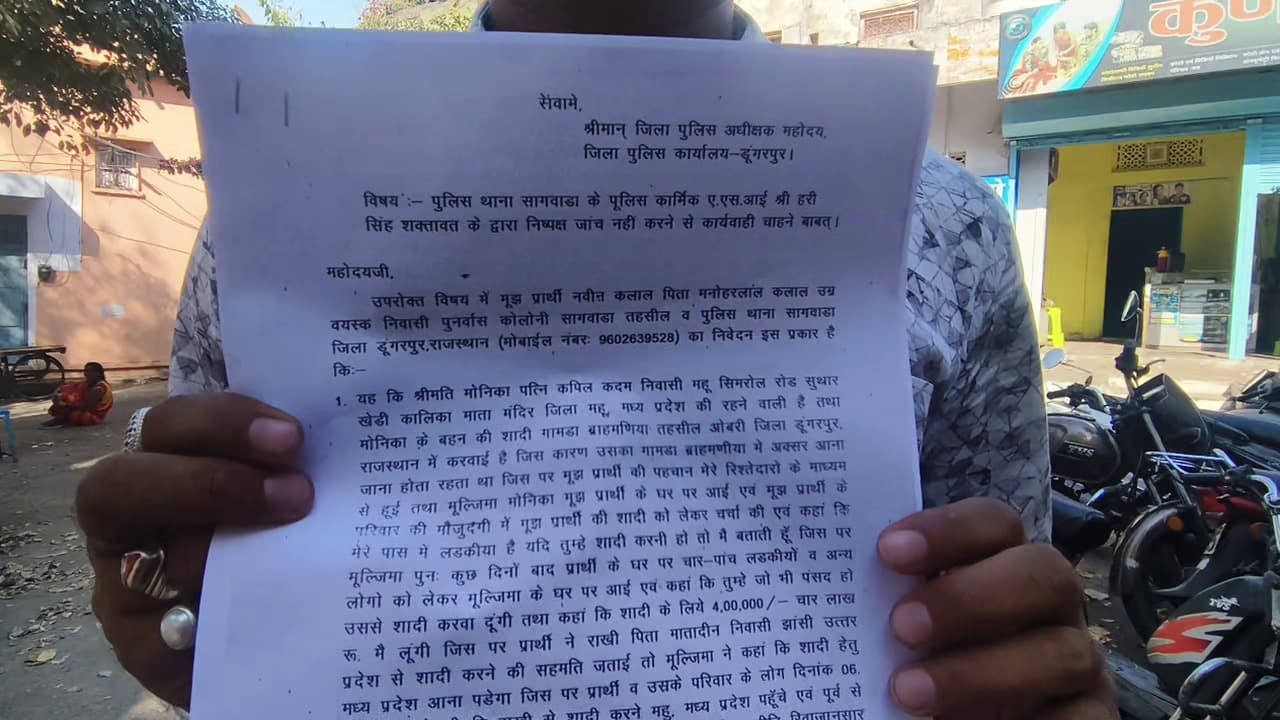 सेवामे,
श्रीमान् जिला पुलिस अधीक्षक महोदय,
जिला पुलिस कार्यालय–डूंगरपुर।
विषय :– पुलिस थाना सागवाडा के पूलिस कार्मिक ए.एस.आई श्री हरी
सिंह शक्तावत के द्वारा निष्पक्ष जांच नहीं करने से कार्यवाही चाहने बाबत्।
महोदयजी,
उपरोक्त विषय में मूझ प्रार्थी नवीन कलाल पिता मनोहरलाल कलाल उम्र
वयस्क निवासी पुनर्वास कोलोनी सागवाडा तहसील व पुलिस थाना सागवाडा
जिला डूंगरपुर,राजस्थान (मोबाईल नंबरः 9602639528) का निवेदन इस प्रकार है
किः–
1. यह कि श्रीमति मोनिका पत्नि कपिल कदम निवासी महू सिमरोल रोड सुथार
खेडी कालिका माता मंदिर जिला महू, मध्य प्रदेश की रहने वाली है तथा
मोनिका के बहन की शादी गामडा ब्राहमणिया तहसील ओबरी जिला डूंगरपुर,
राजस्थान में करवाई है जिस कारण उसका गामडा ब्राहमणीया मे अक्सर आना
जाना होता रहता था जिस पर मूझ प्रार्थी की पहचान मेरे रिश्तेदारो के माध्यम
से हूई तथा मूल्जिमा मोनिका मूझ प्रार्थी के घर पर आई एवं मूझ प्रार्थी के
परिवार की मौजुदगी में मूझ प्रार्थी की शादी को लेकर चर्चा की एवं कहां कि
मेरे पास में लडकीया है यदि तुम्हे शादी करनी हो तो मै बताती हूँ जिस पर
मूल्जिमा पुनः कुछ दिनों बाद प्रार्थी के घर पर चार–पांच लडकीयों व अन्य
लोगो को लेकर मूल्जिमा के घर पर आई एवं कहां कि तुम्हे जो भी पंसद हो
उससे शादी करवा दूंगी तथा कहां कि शादी के लिये 4,00,000/– चार लाख
रू. मै लूंगी जिस पर प्रार्थी ने राखी पिता मातादीन निवासी झांसी उत्तर
प्रदेश से शादी करने की सहमति जताई तो मूल्जिमा ने कहां कि शादी हेतु
मध्य प्रदेश आना पडेगा जिस पर प्रार्थी व उसके परिवार के लोग दिनांक 06.
से शादी करने महू, मध्य प्रदेश पहूँचे एवं पूर्व से